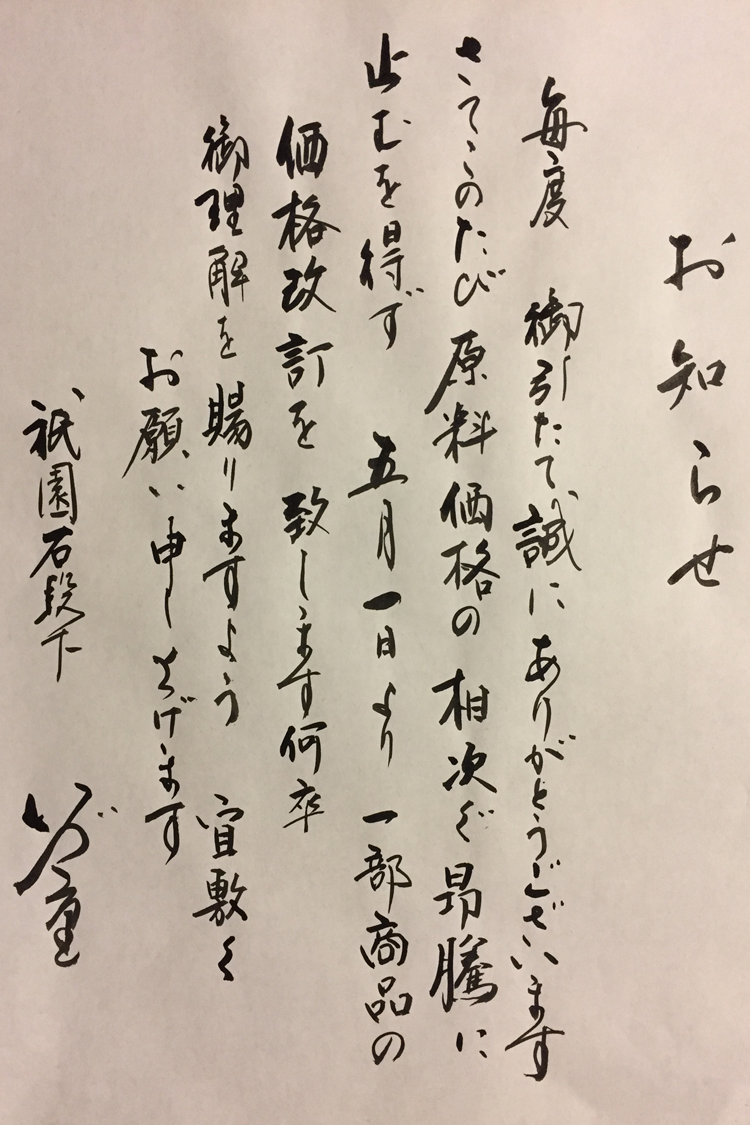 お知らせ
毎度 御引たて誠にありがとうございます
さてこのたび原料価格の相次ぐ昂騰に
止むを得ず 五月一日より 一部商品の
価格改訂を致します何卒
御理解を賜りますよう 宜敷く
お願い申し上げます
祇園石段下
いづ重